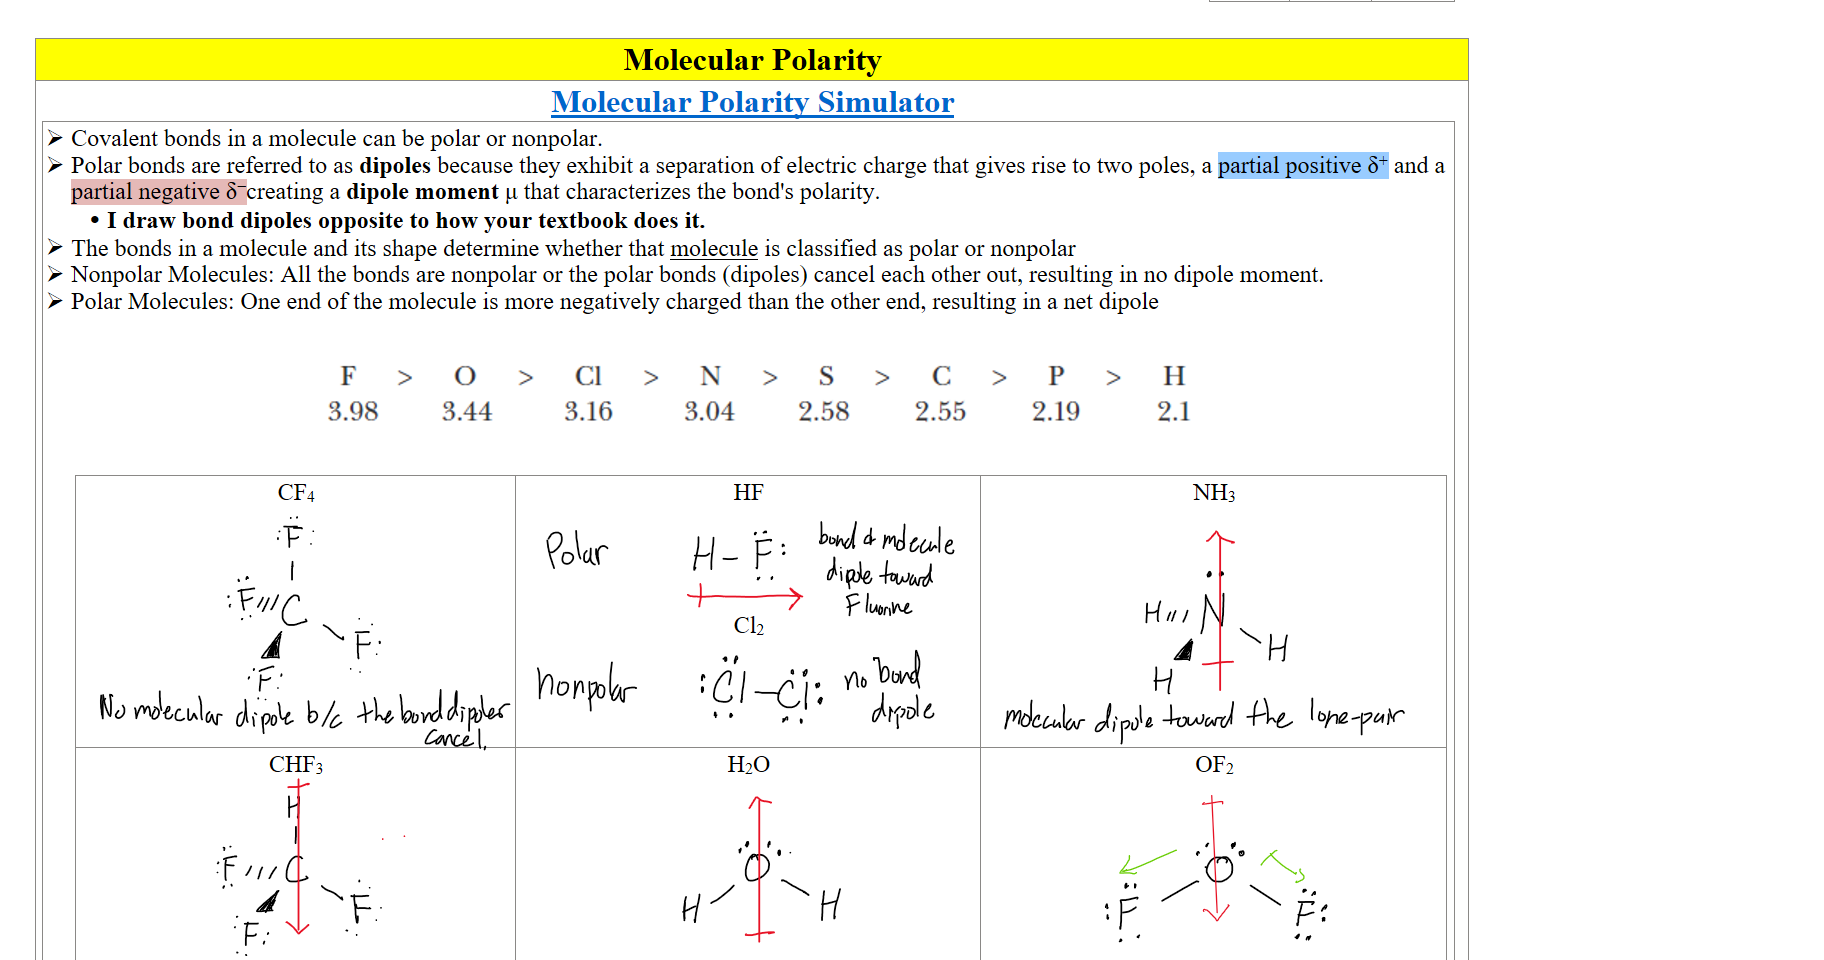 Molecular Polarity
Molecular Polarity Simulator
➢ Covalent bonds in a molecule can be polar or nonpolar.
➢ Polar bonds are referred to as dipoles because they exhibit a separation of electric charge that gives rise to two poles, a partial positive δ⁺ and a
partial negative δ⁻creating a dipole moment μ that characterizes the bond's polarity.
• I draw bond dipoles opposite to how your textbook does it.
➢ The bonds in a molecule and its shape determine whether that molecule is classified as polar or nonpolar
➢ Nonpolar Molecules: All the bonds are nonpolar or the polar bonds (dipoles) cancel each other out, resulting in no dipole moment.
➢ Polar Molecules: One end of the molecule is more negatively charged than the other end, resulting in a net dipole
F > O > Cl > N > S > C > P > H
3.98 3.44 3.16 3.04 2.58 2.55 2.19 2.1
CF₄
F
F C
F
F
No molecular dipole b/c the bond dipoles
cancel.
HF
Polar
H – F
bond & molecule
dipole toward
Fluorine
Cl₂
nonpolar
Cl – Cl
no bond
dipole
NH₃
H N
H
H
molecular dipole toward the lone-pair
CHF₃
H
F C
F
F
H₂O
O
H H
OF₂
O
F F